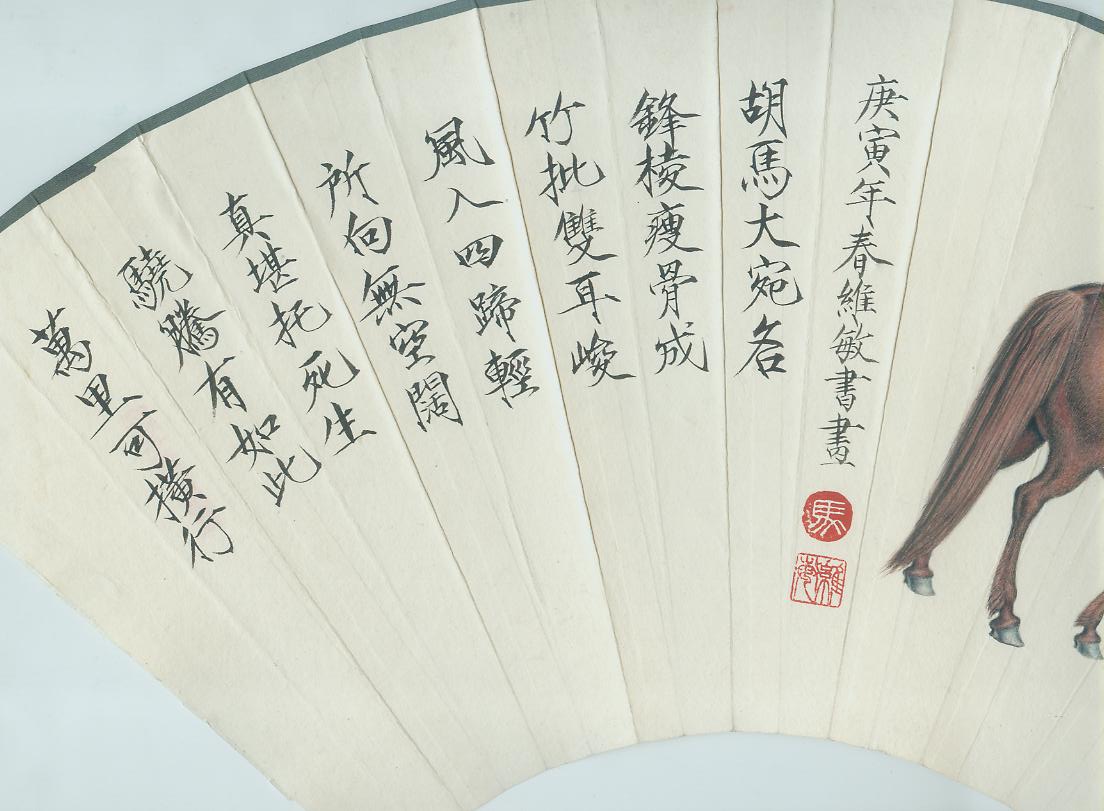 庚寅年春維敏書畫
馬
維敏
胡馬大宛名
鋒棱瘦骨成
竹批雙耳峻
風入四蹄輕
所向無空闊
真堪托死生
驍騰有如此
萬里可橫行